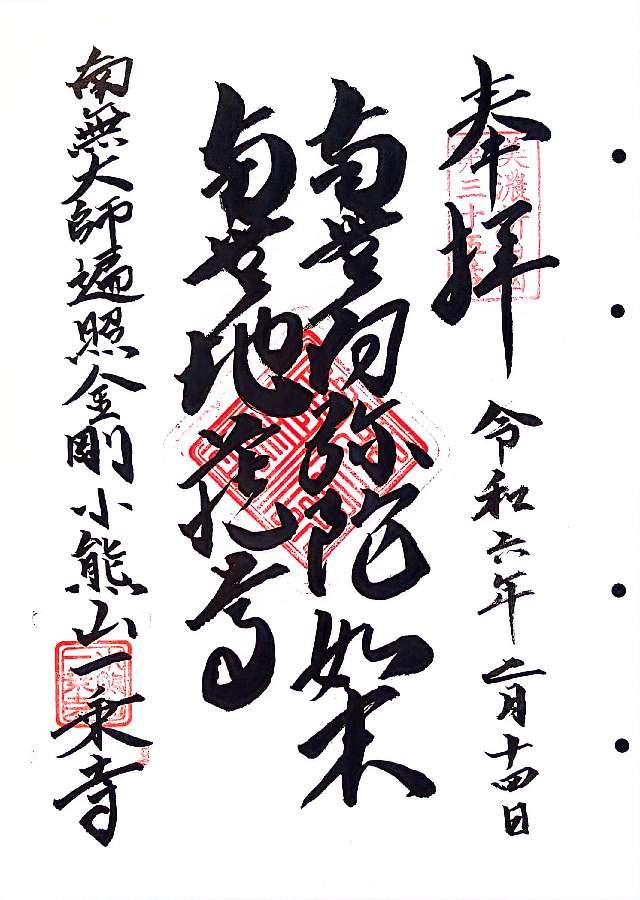 奉拝
美濃新四国
第三十五番
令和六年二月十四日
南無阿弥陀如来
南無地蔵尊
南無大師遍照金剛小熊山一乗寺